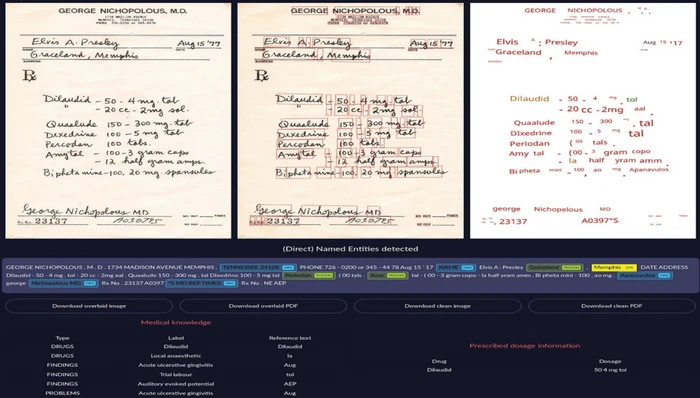 GEORGE NICHOPOLOUS, M.D.
1734 MADISON AVENUE
MEMPHIS, TENNESSEE 38104
Elvis A. Presley Aug 15 '77
NAME DATE
Graceland, Memphis
ADDRESS
Rx
Dilaudid - 50 - 4 mg. tab
" - 20 cc - 2mg sol.
Quaalude 150 - 300 mg. tab
Dexedrine 100 - 5 mg tab
Percodan 100 tabs.
Amytal - 100 - 3 gram caps
- 12 half gram amps.
Biphetamine - 100, 20 mg. spansules
George Nichopolous MD
23137
GEORGE NICHOPOLOUS, M.D.
1734 MADISON AVENUE
MEMPHIS, TENNESSEE 38104
Elvis A. Presley Aug 15 '77
NAME DATE
Graceland, Memphis
ADDRESS
Rx
Dilaudid - 50 - 4 mg. tab
" - 20 cc - 2mg sol.
Quaalude 150 - 300 mg. tab
Dexedrine 100 - 5 mg tab
Percodan 100 tabs.
Amytal - 100 - 3 gram caps
- 12 half gram amps.
Biphetamine - 100, 20 mg. spansules
George Nichopolous MD
23137
GEORGE NICHOPOLOUS
Elvis A : Presley Aug 15 '17
Graceland , Memphis
Dilaudid - 50 - 4 mg . tol
- 20 cc - 2mg aal .
Quaalude 150 - 300 . tal
DIxedrine 100 - 5 mg tal
Perlodan ( 00 tals .
Amy tal - ( 00 - 3 gram copo
- la half yram amm .
Bi pheta mini - 100 , ao mg . Apanavulos
george Nichopelous MD
23137 A0397"S
(Direct) Named Entities detected
GEORGE NICHOPOLOUS , M . D . 1734 MADISON AVENUE MEMPHIS , TENNESSEE 38108 PHONE 726 - 0200 or 345 - 44 76 Aug 15 ' 17 NAME Elvis A : Presley Graceland , Memphis DATE ADDRESS
Dilaudid - 50 - 4 mg . tol - 20 cc - 2mg aal . Quaalude 150 - 300 mg . tal DIxedrine 100 - 5 mg tal Perlodan ( 00 tals . Amy tal - ( 00 - 3 gram copo - la half yram amm . Bi pheta mini - 100 , ao mg . Apanavulos
george Nichopelous MD Rx No . 23137 A0397 "S MD REP TIMES Rx No . NE AEP
Download overlaid image
Download overlaid PDF
Download clean image
Download clean PDF
Medical knowledge
Type Label Reference text
DRUGS Dilaudid Dilaudid
DRUGS Local anaesthetic la
FINDINGS Acute ulcerative gingivitis Aug
FINDINGS Trial labour tol
FINDINGS Auditory evoked potential AEP
PROBLEMS Acute ulcerative gingivitis Aug
Prescribed dosage information
Drug Dosage
Dilaudid 50 4 mg tol